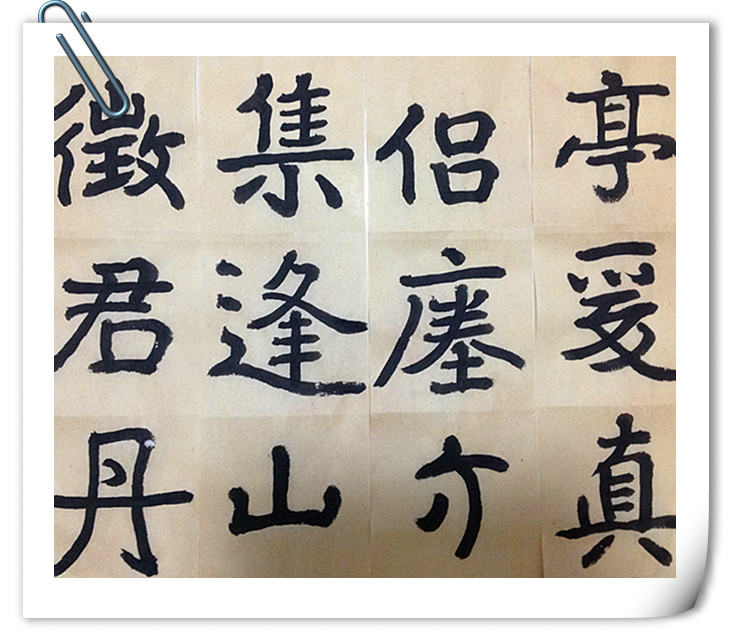 亭爰真
侣
集逢山
徵君丹